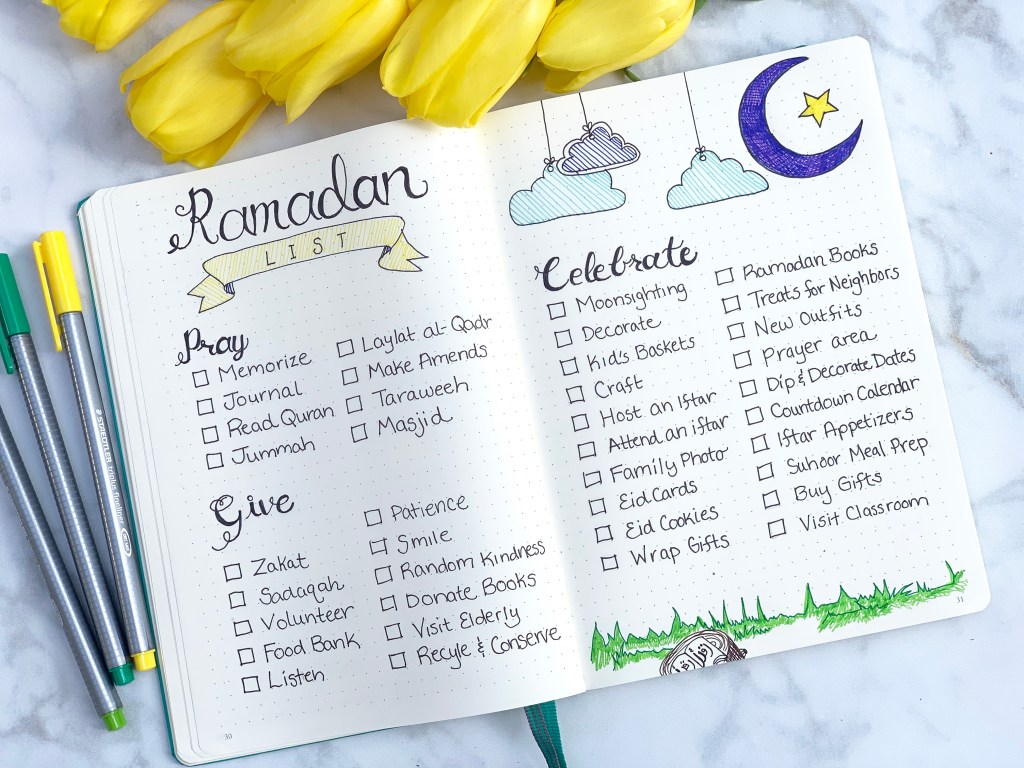 Ramadan
LIST
Pray
Memorize
Journal
Read Quran
Jummah
Laylat al-Qadr
Make Amends
Taraweeh
Masjid
Give
Zakat
Sadaqah
Volunteer
Food Bank
Listen
Patience
Smile
Random Kindness
Donate Books
Visit Elderly
Recyle & Conserve
30
Celebrate
Moonsighting
Decorate
Kid's Baskets
Craft
Host an Iftar
Attend an iftar
Family Photo
Eid Cards
Eid Cookies
Wrap Gifts
Ramadan Books
Treats for Neighbors
New Outfits
Prayer area
Dip & Decorate Dates
Countdown Calendar
Iftar Appetizers
Suhoor Meal Prep
Buy Gifts
Visit Classroom
31
STAEDTLER triplus fineliner